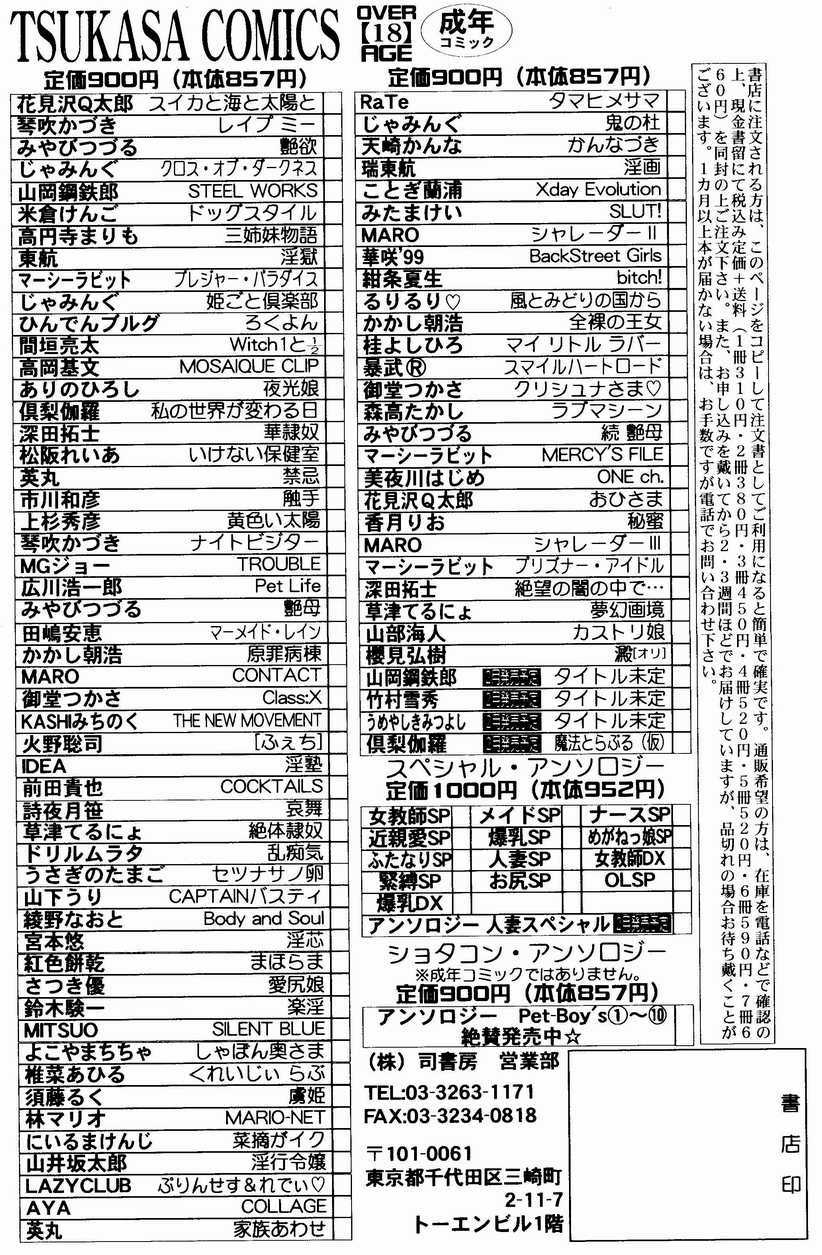 TSUKASA COMICS
OVER
【18】
AGE
成年
コミック
定価900円（本体857円）
花見沢Q太郎 スイカと海と太陽と
琴吹かづき レイプ ミー
みやびつづる 艶欲
じゃみんぐ クロス・オブ・ダークネス
山岡鋼鉄郎 STEEL WORKS
米倉けんご ドッグスタイル
高円寺まりも 三姉妹物語
東航 淫獄
マーシーラビット プレジャー・パラダイス
じゃみんぐ 姫ごと倶楽部
ひんでんブルグ ろくよん
間垣亮太 Witch1と½
高岡基文 MOSAIQUE CLIP
ありのひろし 夜光娘
倶梨伽羅 私の世界が変わる日
深田拓士 華隷奴
松阪れいあ いけない保健室
英丸 禁忌
市川和彦 触手
上杉秀彦 黄色い太陽
琴吹かづき ナイトビジター
MGジョー TROUBLE
広川浩一郎 Pet Life
みやびつづる 艶母
田嶋安恵 マーメイド・レイン
かかし朝浩 原罪病棟
MARO CONTACT
御堂つかさ Class:X
KASHIみちのく THE NEW MOVEMENT
火野聡司 [ふぇち]
IDEA 淫塾
前田貴也 COCKTAILS
詩夜月笹 哀舞
草津てるにょ 絶体隷奴
ドリルムラタ 乱痴気
うさぎのたまご セツナサノ卵
山下うり CAPTAINバスティ
綾野なおと Body and Soul
宮本悠 淫芯
紅色餅乾 まほらま
さつき優 愛尻娘
鈴木験一 楽淫
MITSUO SILENT BLUE
よこやまちちゃ しゃぼん奥さま
椎菜あひる くれいじぃ らぶ
須藤るく 虜姫
林マリオ MARIO-NET
にいるまけんじ 菜摘がイク
山井坂太郎 淫行令嬢
LAZYCLUB ぷりんせす&れでぃ♡
AYA COLLAGE
英丸 家族あわせ
定価900円（本体857円）
RaTe タマヒメサマ
じゃみんぐ 鬼の杜
天崎かんな かんなづき
瑞東航 淫画
ことぎ蘭浦 Xday Evolution
みたまけい SLUT!
MARO シャレーダーⅡ
華咲'99 BackStreet Girls
紺条夏生 bitch!
るりるり♡ 風とみどりの国から
かかし朝浩 全裸の王女
桂よしひろ マイ リトル ラバー
暴武Ⓡ スマイルハートロード
御堂つかさ クリシュナさま♡
森高たかし ラブマシーン
みやびつづる 続 艶母
マーシーラビット MERCY'S FILE
美夜川はじめ ONE ch.
花見沢Q太郎 おひさま
香月りお 秘蜜
MARO シャレーダーⅢ
マーシーラビット プリズナー・アイドル
深田拓士 絶望の闇の中で…
草津てるにょ 夢幻画境
山部海人 カストリ娘
櫻見弘樹 澱[オリ]
山岡鋼鉄郎 タイトル未定
竹村雪秀 タイトル未定
うめやしきみつよし タイトル未定
倶梨伽羅 魔法とらぶる（仮）
スペシャル・アンソロジー
定価1000円（本体952円）
女教師SP メイドSP ナースSP
近親愛SP 爆乳SP めがねっ娘SP
ふたなりSP 人妻SP 女教師DX
緊縛SP お尻SP OLSP
爆乳DX
アンソロジー 人妻スペシャル
ショタコン・アンソロジー
※成年コミックではありません。
定価900円（本体857円）
アンソロジー Pet-Boy's①〜⑩
絶賛発売中☆
（株）司書房 営業部
TEL:03-3263-1171
FAX:03-3234-0818
〒101-0061
東京都千代田区三崎町
2-11-7
トーエンビル1階
書店に注文される方は、このページをコピーして注文書としてご利用になると簡単で確実です。通販希望の方は、在庫を電話などで確認の
上、現金書留にて税込み定価＋送料（1冊310円・2冊380円・3冊450円・4冊520円・5冊520円・6冊590円・7冊6
60円）を同封の上ご注文下さい。また、お申し込みを戴いてから2・3週間ほどでお届けしていますが、品切れの場合お待ち戴くことが
ございます。1カ月以上本が届かない場合は、お手数ですが電話でお問い合わせ下さい。
書店印